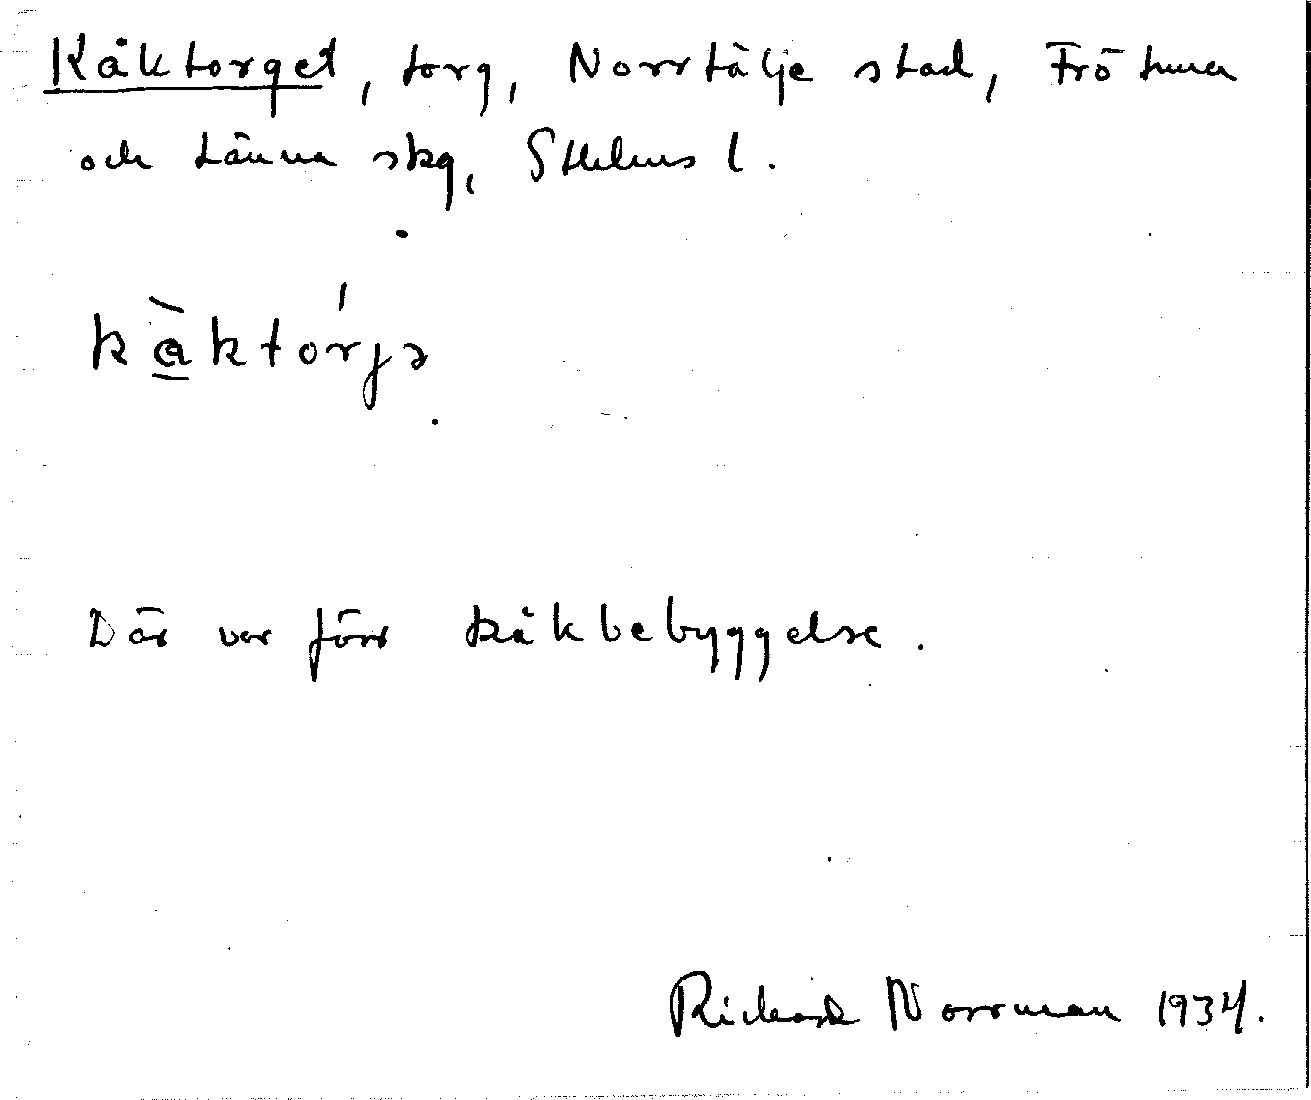 Kåktorget, torg, Norrtälje stad, Frötuna
och Länna skg, Sthlms l.
kå̀którjə
Där var förr kåkbebyggelse.
Richard Norrman 1934.